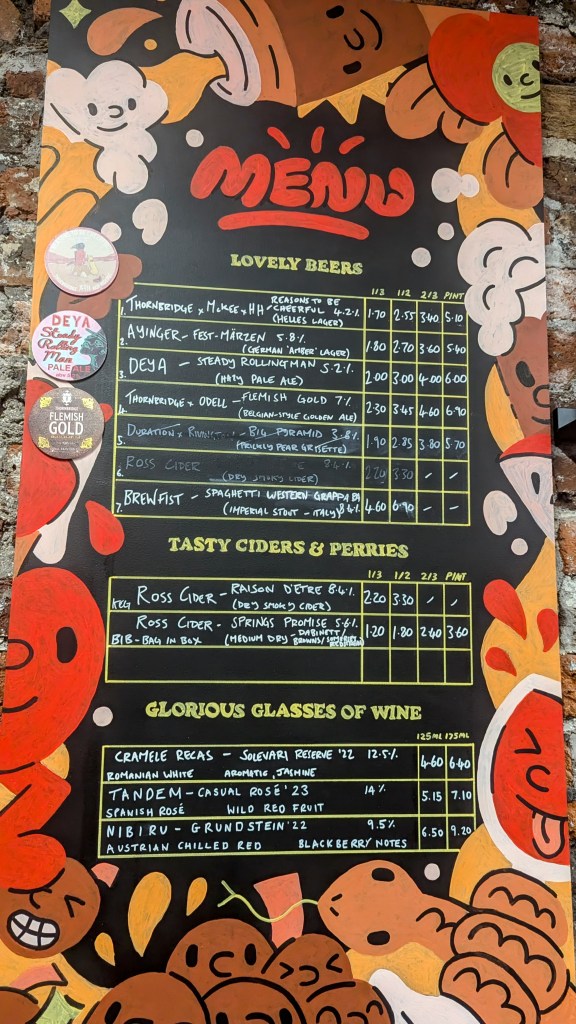 MENU
LOVELY BEERS
1/3 1/2 2/3 PINT
1. THORNBRIDGE x McKEE x HH - REASONS TO BE CHEERFUL 4.2% 1.70 2.55 3.40 5.10
(HELLES LAGER)
2. AYINGER - FEST-MÄRZEN 5.8% 1.80 2.70 3.60 5.40
(GERMAN 'AMBER' LAGER)
3. DEYA - STEADY ROLLING MAN 5.2% 2.00 3.00 4.00 6.00
(HAZY PALE ALE)
4. THORNBRIDGE x ODELL - FLEMISH GOLD 7% 2.30 3.45 4.60 6.90
(BELGIAN-STYLE GOLDEN ALE)
5. DURATION x - BIG PYRAMID 3.8% 1.90 2.85 3.80 5.70
(PRICKLY PEAR GRISETTE)
6. ROSS CIDER 8.4% 2.20 3.30 / /
(DRY SMOKY CIDER)
7. BREWFIST - SPAGHETTI WESTERN GRAPPA BA 4.60 6.90 / /
(IMPERIAL STOUT - ITALY) 8.4%
DEYA
Steady
Rolling
Man
PALE ALE
FLEMISH
GOLD
TASTY CIDERS & PERRIES
1/3 1/2 2/3 PINT
KEG ROSS CIDER - RAISON D'ETRE 8.4% 2.20 3.30 / /
(DRY SMOKY CIDER)
ROSS CIDER - SPRINGS PROMISE 5.6% 1.20 1.80 2.40 3.60
BIB - BAG IN BOX (MEDIUM DRY - DABINETT/
BROWNS/SOMERSET REDSTREAK)
GLORIOUS GLASSES OF WINE
125ML 175ML
CRAMELE RECAS - SOLEVARI RESERVE '22 12.5% 4.60 6.40
ROMANIAN WHITE AROMATIC, JASMINE
TANDEM - CASUAL ROSÉ '23 14% 5.15 7.10
SPANISH ROSÉ WILD RED FRUIT
NIBIRU - GRUNDSTEIN '22 9.5% 6.50 9.20
AUSTRIAN CHILLED RED BLACKBERRY NOTES